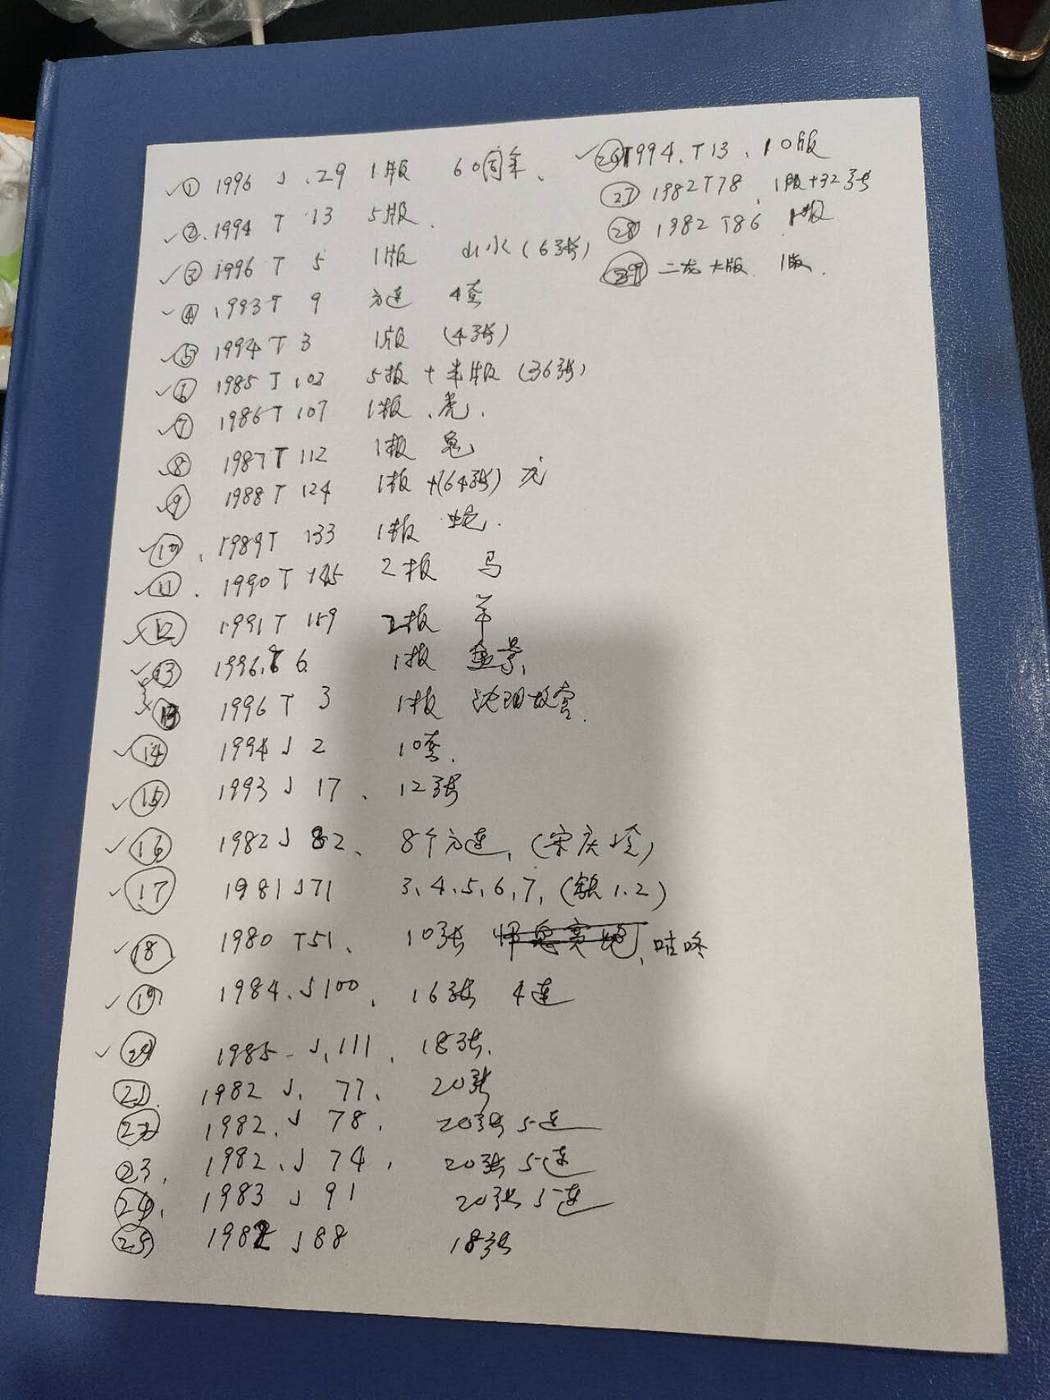 ✓① 1996 J.29 1版 60周年、
✓②.1994 T 13 5版.
✓③ 1996 T 5 1版 山水(6张)
✓④ 1993T 9 方连 4套
✓⑤ 1994 T 3 1版 (4张)
✓⑥ 1985 T 102 5板 + 半版 (36张)
✓⑦ 1986T 107 1板、虎.
✓⑧ 1987T 112 1板 兔
✓⑨ 1988 T 124 1板 +(64张) 龙
✓⑩、1989T 133 1板 蛇.
✓⑪. 1990 T 145 2板 马
✓⑫ 1991 T 159 2板 羊
✓⑬ 1996. 6 1板
⑬ 1996 T 3 1板 沈阳故宫.
✓⑭ 1994 J 2 10套.
✓⑮ 1993 J 17、12张
✓⑯ 1982 J 82、8个方连,(宋庆玲)
✓⑰ 1981 J71 3、4、5、6、7,(缺1.2)
✓⑱ 1980 T51、10张 咕咚
✓⑲ 1984.J100、16张 4连
✓⑳ 1985-J.111、18张.
㉑. 1982 J. 77、20张
㉒ 1982.J 78、20张 5连
㉓, 1982.J 74, 20张 5连
㉔, 1983 J 91 20张 5连
㉕ 1982 J88 18张
✓㉖1994.T13、10版
㉗ 1982T78、1版+32张
㉘ 1982 T86
㉙ 二龙大版、1版.